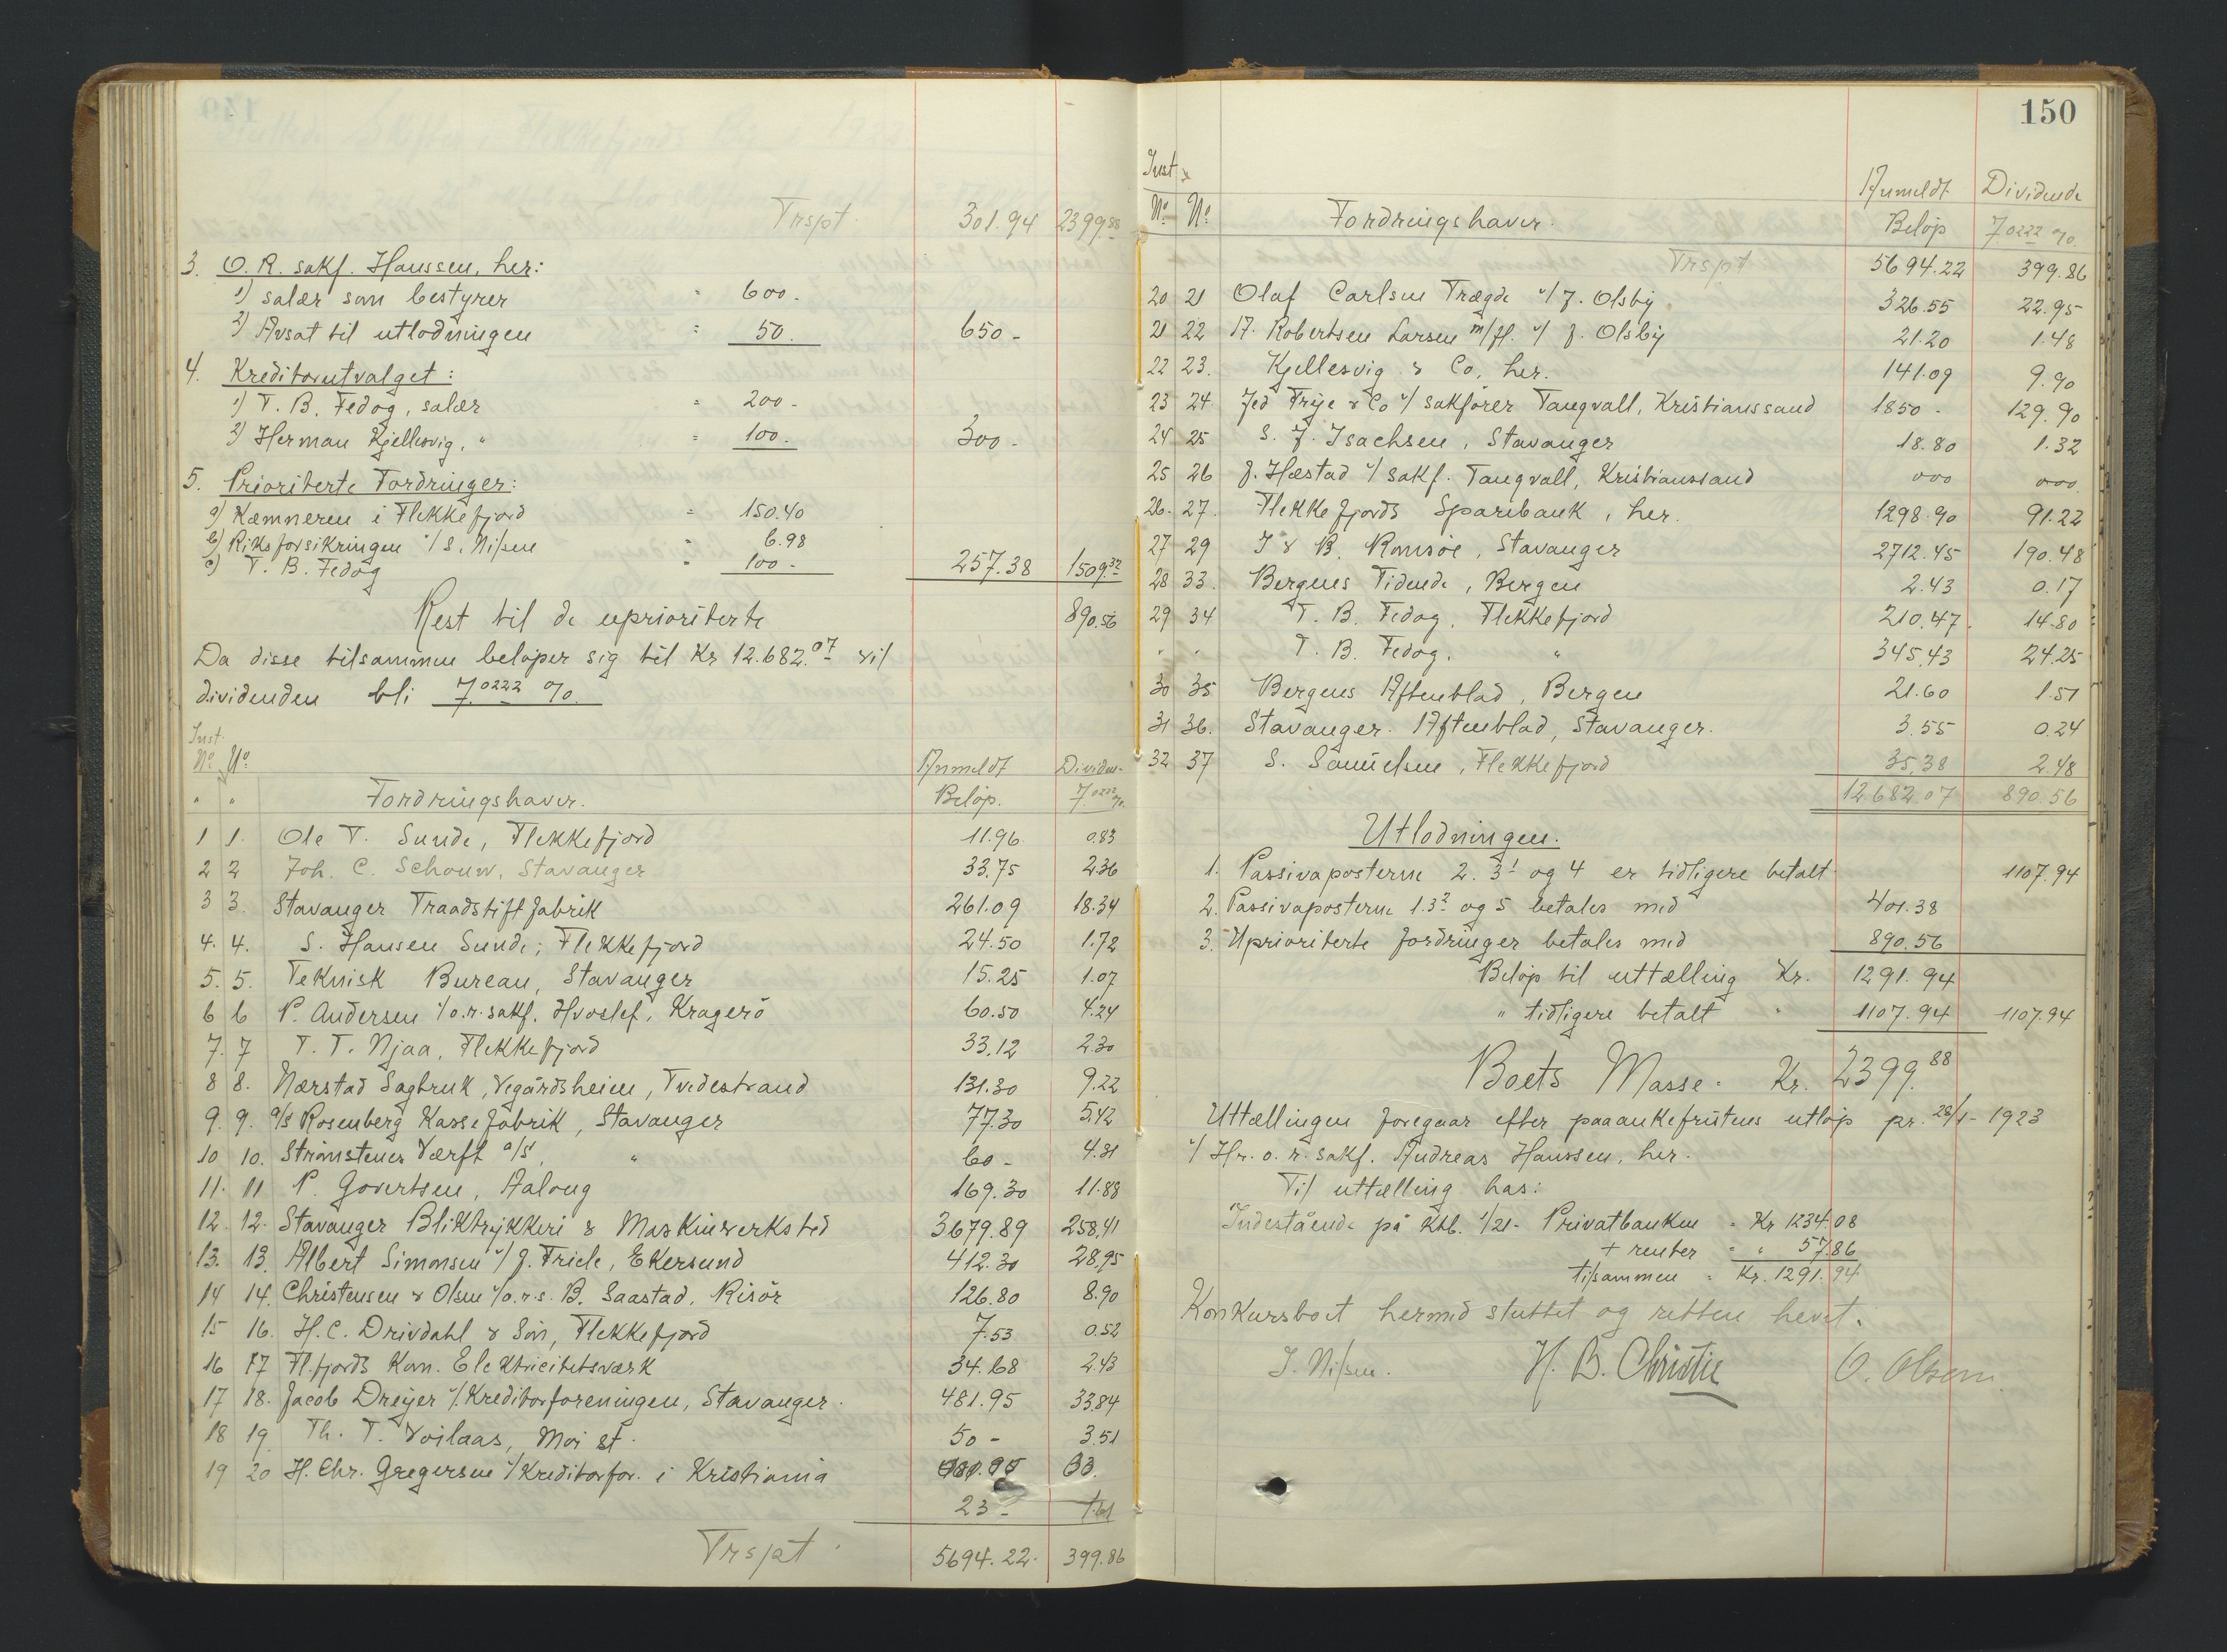 Trspt. 301.94 2399.88
3. O. R. sakf. Hanssen, her:
1) salær som bestyrer = 600.-
2) Avsat til utlodningen = 50. 650-
4. Kreditorutvalget:
1) T. B. Fedog, salær = 200-
2) Herman Kjellesvig, " = 100. 300-
5. Prioriterte Fordringer:
a) Kæmneren i Flekkefjord = 150.40
b) Riksforsikringen v/ S. Nilsen = 6.98
c) T. B. Fedog = 100- 257.38 1509.32
Rest til de uprioriterte 890.56
Da disse tilsammen beløper sig til Kr 12.682.07 vil
dividenden bli 7.0222 %.
Inst.
No No Anmeldt Dividen-
" " Fordringshaver. Beløp. 7.0222 %.
1 1. Ole T. Sunde, Flekkefjord 11.96 0.83
2 2 Joh. C. Schouw, Stavanger 33.75 2.36
3 3. Stavanger Traadstiftfabrik 261.09 18.34
4. 4. S. Hansen Sunde, Flekkefjord 24.50 1.72
5. 5. Teknisk Bureau, Stavanger 15.25 1.07
6 6 P. Andersen v/o.r.sakf. Hvoslef, Kragerö 60.50 4.24
7. 7 T. T. Njaa, Flekkefjord 33.12 2.30
8 8. Nærstad Sagbruk, Vegårdsheien, Tvedestrand 131.30 9.22
9. 9. a/s Rosenberg Kassefabrik, Stavanger 77.30 5.42
10 10. Strömstenes Værft a/s, " 60- 4.31
11. 11 P. Govertsen, Aalong 169.30 11.88
12. 12. Stavanger Bliktrykkeri & Maskinverksted 3679.89 258.41
13. 13. Albert Simonsen v/ J. Friele, Ekersund 412.30 28.95
14 14. Christensen & Olsen v/o.r.s. B. Saastad, Risör 126.80 8.90
15 16. H. C. Drivdahl & Sön, Flekkefjord 7.53 0.52
16 17 Fl.fjords Kom. Elektricitetsværk 34.68 2.43
17 18. Jacob Dreyer v/Kreditorforeningen, Stavanger. 481.95 33.84
18 19. Th. T. Voilaas, Moi st. 50- 3.51
19 20 H. Chr. Gregersen v/Kreditorfor. i Kristiania
23- 1.61
Trspt. 5694.22. 399.86
150
Inst.
Anmeldt Dividende
No No. Fordringshaver. Beløp 7.0222 %.
Trspt 5694.22 399.86
20 21 Olaf Carlsen Trægde v/ J. Olsby. 326.55 22.95
21 22 A. Robertsen Larsen m/fl. v/ J. Olsby 21.20 1.48
22 23. Kjellesvig & Co, her. 141.09 9.90
23 24. Jed Frye & Co v/ sakfører Tangvall, Kristianssand 1850- 129.90
24 25 S. J. Isachsen, Stavanger 18.80 1.32
25 26 J. Hæstad v/ sakf. Tangvall, Kristianssand ooo ooo
26. 27. Flekkefjords Sparebank, her. 1298.90 91.22
27 29 I & B. Romsöe, Stavanger 2712.45 190.48
28 33. Bergens Tidende, Bergen 2.43 0.17
29 34 T. B. Fedog, Flekkefjord 210.47. 14.80
" " T. B. Fedog, " 345.43 24.25
30 35 Bergens Aftenblad, Bergen 21.60 1.51
31 36. Stavanger Aftenblad, Stavanger. 3.55 0.24
32 37 S. Samuelsen, Flekkefjord 35.38 2.48
12682.07 890.56
Utlodningen.
1. Passivaposterne 2. 3.1 og 4 er tidligere betalt 1107.94
2. Passivaposterne 1. 3.2 og 5 betales med 401.38
3. Uprioriterte fordringer betales med 890.56
Beløp til uttælling Kr. 1291.94
" tidligere betalt " 1107.94 1107.94
Boets Masse. Kr. 2399.88
Uttællingen foregaar efter paaankefristens utløp pr. 28/1- 1923
v/ Hr. o. r. sakf. Andreas Hanssen, her.
Til uttælling has:
Indestående på Ktb. 1/21- Privatbanken = Kr 1234.08
+ renter = " 57.86
tilsammen = Kr. 1291.94
Konkursboet hermed sluttet og retten hevet.
S. Nilsen. H. B. Christie O. Olsen.